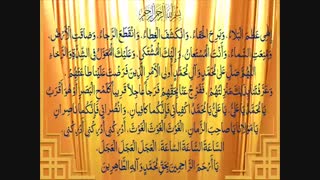 بسم الله الرحمن الرحیم
اِلٰهی عَظُمَ الْبَلاءُ، وَبَرِحَ الْخَفاءُ، وَانْكَشَفَ الْغِطاءُ، وَانْقَطَعَ الرَّجاءُ، وَضاقَتِ الْاَرْضُ،
وَمُنِعَتِ السَّماءُ، وَاَنْتَ الْمُسْتَعانُ، وَاِلَيْكَ الْمُشْتَكى، وَعَلَيْكَ الْمُعَوَّلُ فِى الشِّدَّةِ وَالرَّخاءِ
اَللّهُمَّ صَلِّ عَلى مُحَمَّدٍ وَآلِ مُحَمَّدٍ، اُولِى الْاَمْرِ الَّذينَ فَرَضْتَ عَلَيْنا طاعَتَهُمْ،
وَعَرَّفْتَنا بِذلِكَ مَنْزِلَتَهُمْ، فَفَرِّجْ عَنّا بِحَقِّهِمْ فَرَجاً عاجِلاً قَريباً كَلَمْحِ الْبَصَرِ اَوْ هُوَ اَقْرَبُ
يا مُحَمَّدُ يا عَلِىُّ، يا عَلِىُّ يا مُحَمَّدُ اِكْفِيانى فَاِنَّكُما كافِيانِ، وَانْصُرانى فَاِنَّكُما ناصِرانِ
يا مَوْلانا يا صاحِبَ الزَّمانِ، الْغَوْثَ الْغَوْثَ الْغَوْثَ، اَدْرِكْنى، اَدْرِكْنى، اَدْرِكْنى،
السّاعَةَ السّاعَةَ السّاعَةَ، الْعَجَلَ الْعَجَلَ الْعَجَلَ،
يا اَرْحَمَ الرّاحِمينَ بِحَقِّ مُحَمَّدٍ وَآلِهِ الطّاهِرينَ